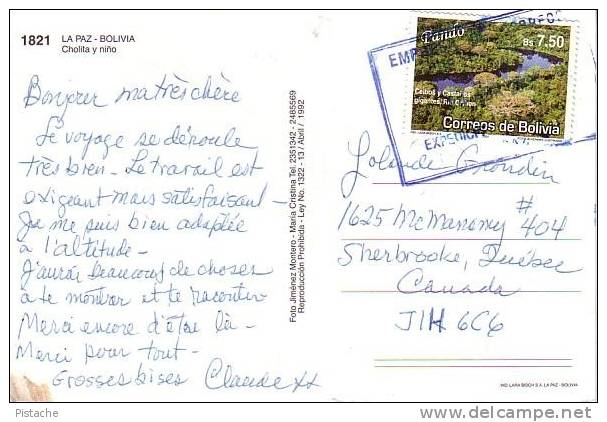 1821 LA PAZ - BOLIVIA
Cholita y niño
Bonjour ma très chère
Le voyage se déroule
très bien - Le travail est
exigeant mais satisfaisant -
Je me suis bien adaptée
à l'altitude -
J'aurai beaucoup de choses
à te montrer et te raconter
Merci encore d'être là -
Merci pour tout -
Grosses bises Claude xx
Foto Jiménez Montero - María Cristina Tel. 2351342 - 2485569
Reproducción Prohibida - Ley No. 1322 - 13 / Abril / 1992
Pando
Bs 7.50
Ceibos y Castaños
gigantes,
Correos de Bolivia
Yolande Grondin
1625 McManamy # 404
Sherbrooke, Québec
Canada
J1H 6C6
IND. LARA BISCH S.A. LA PAZ - BOLIVIA
Pistache
delcampe.net